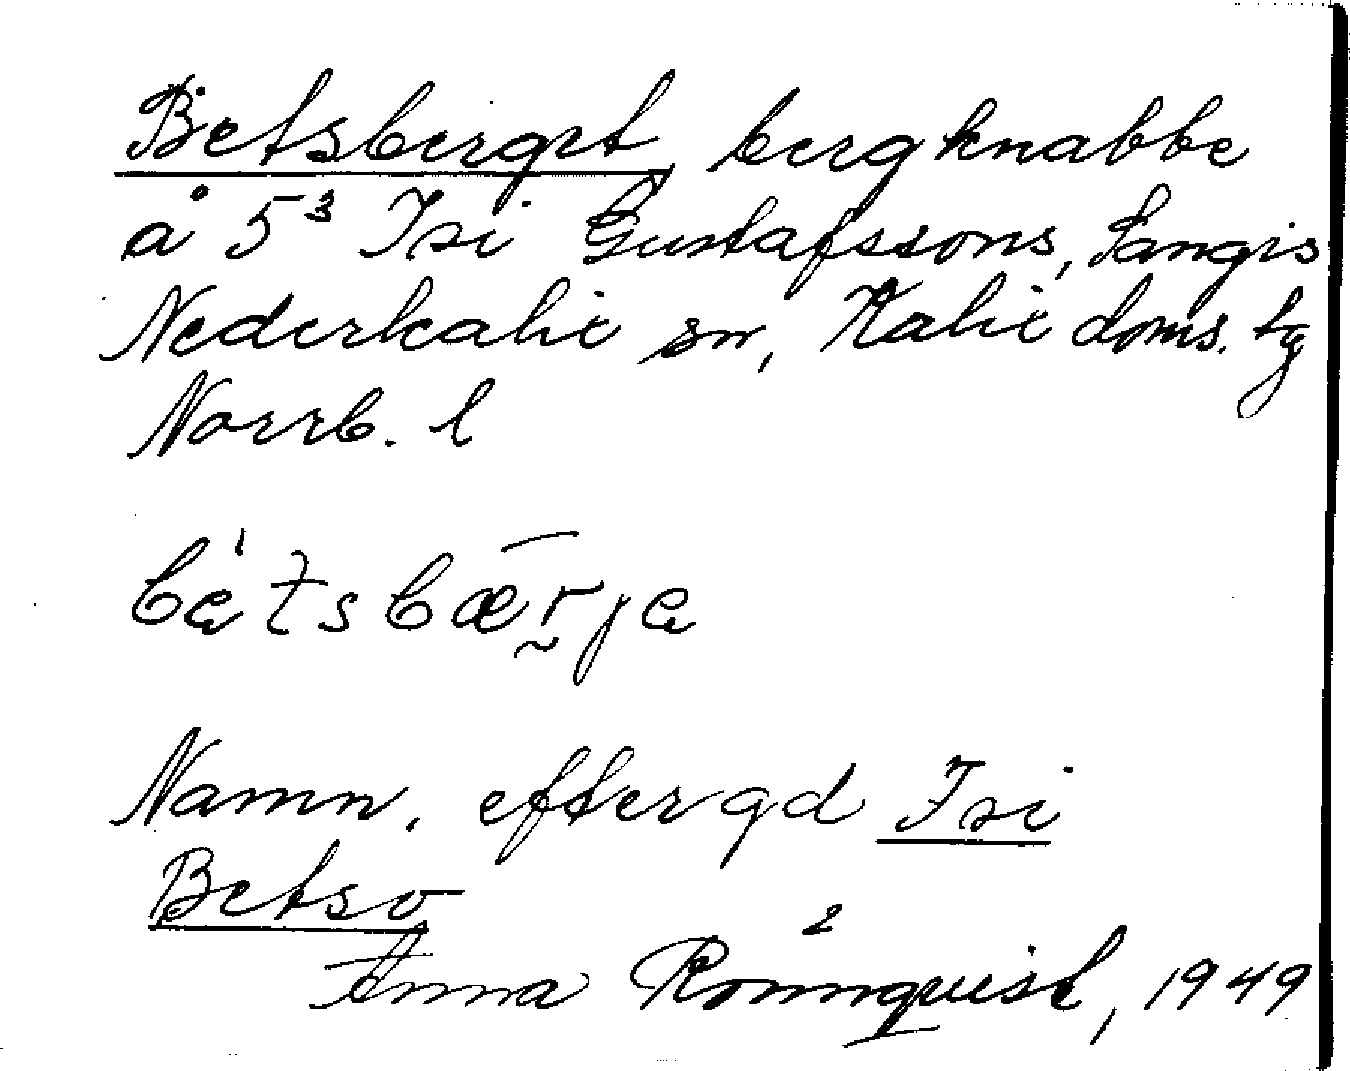 Betsberget, bergknabbe
å 5³ Isi Gustafssons, Sangis
Nederkalix sn, Kalix doms. tg
Norrb. l
be̍tsbær̄je
Namn. efter gd Isi
Betsv
Anna Rönnquist, 1949